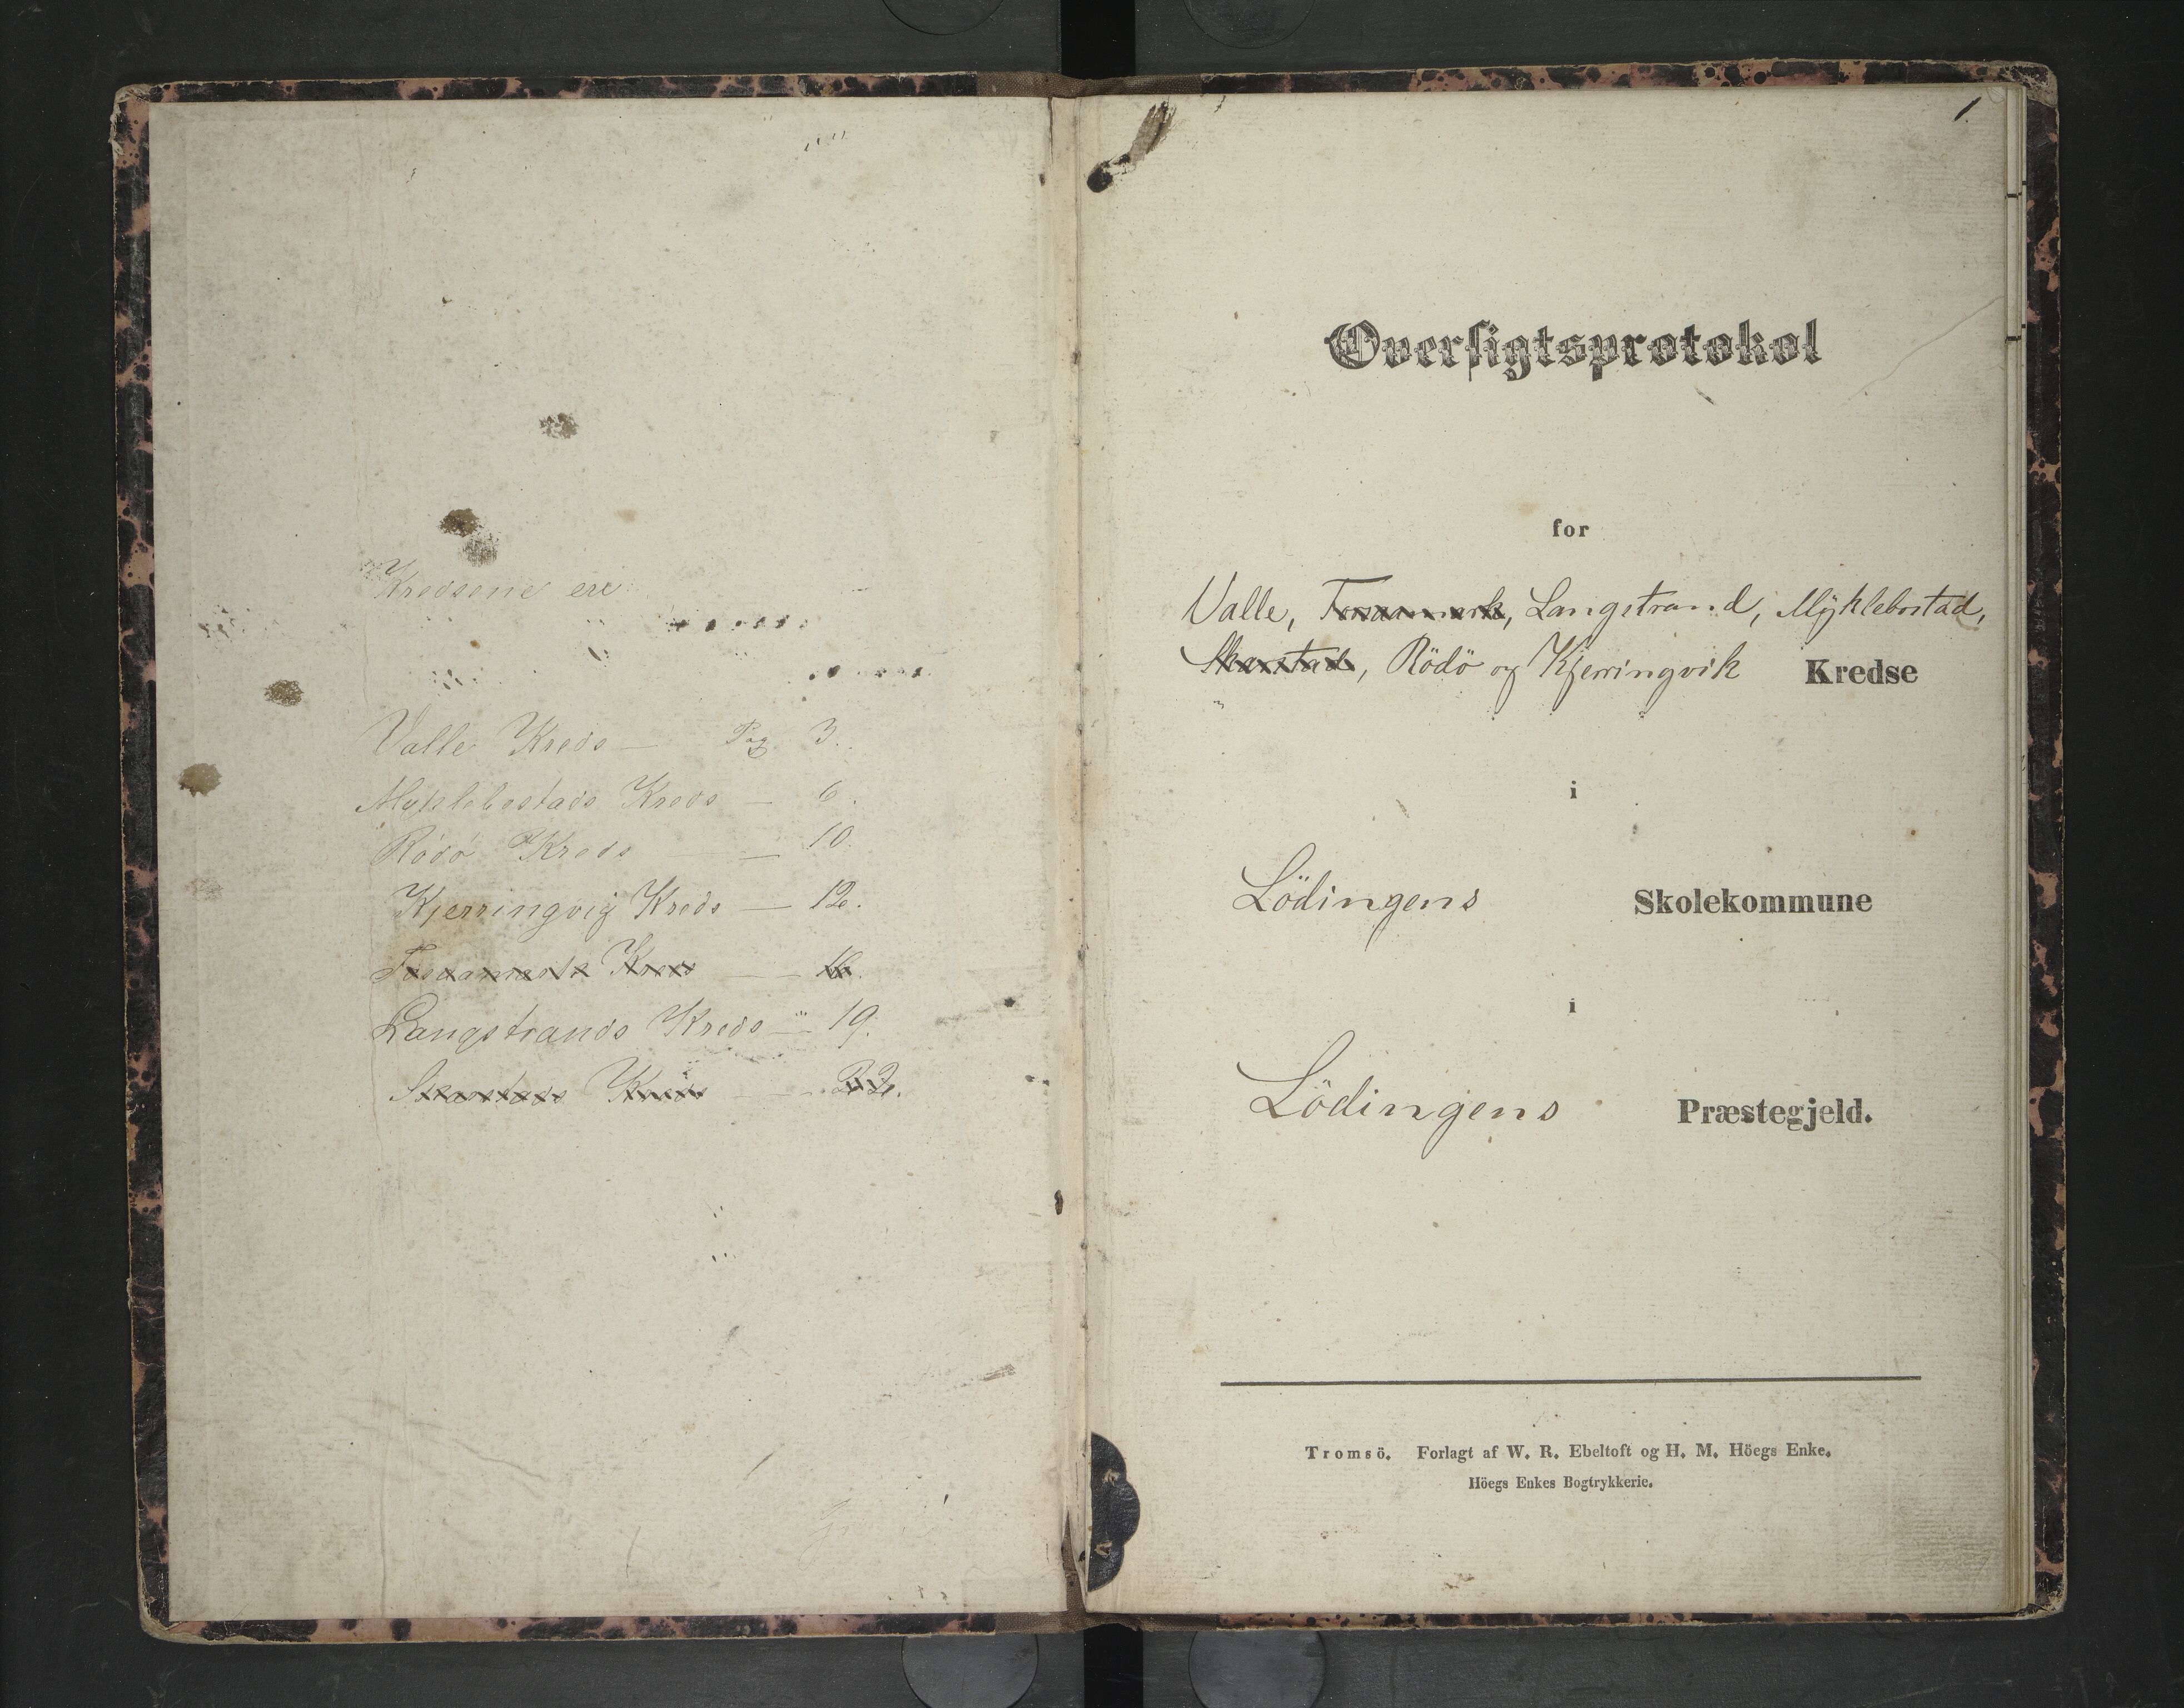 Kredsene ere
Valle Kreds — Pag. 3.
Myklebostads Kreds — 6.
Rödö Kreds — — 10.
Kjerringvig Kreds — 12.
Fosaamark Kreds — — 16.
Langstrands Kreds — 19.
Skarstads Kreds — — 22.
1.
Oversigtsprotokol
for
Valle, Fosaamark, Langstrand, Myklebostad,
Skarstad, Rödö og Kjerringvik Kredse
i
Lödingens Skolekommune
i
Lödingens Præstegjeld.
Tromsö. Forlagt af W. R. Ebeltoft og H. M. Höegs Enke.
Höegs Enkes Bogtrykkerie.